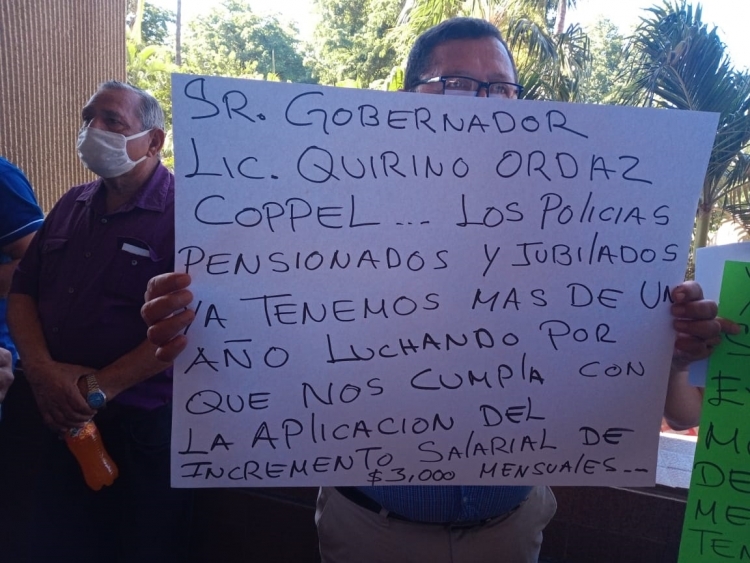 SR. GOBERNADOR
LIC. QUIRINO ORDAZ
COPPEL... LOS POLICIAS
PENSIONADOS Y JUBILADOS
YA TENEMOS MAS DE UN
AÑO LUCHANDO POR
QUE NOS CUMPLA CON
LA APLICACION DEL
INCREMENTO SALARIAL DE
$3,000 MENSUALES...